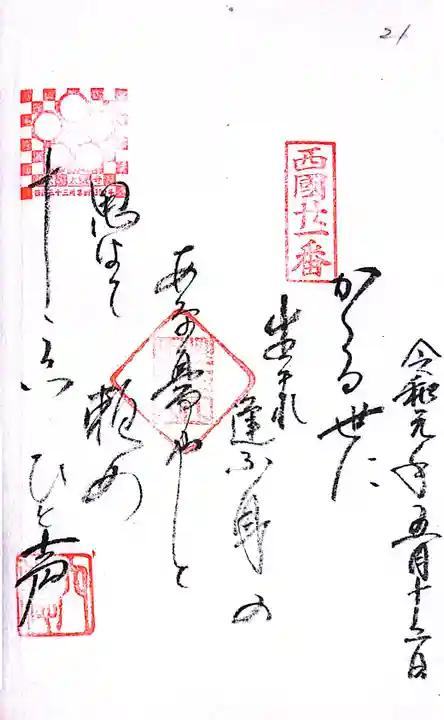 21
西國廿一番
令和元年五月十六日
かゝる世に
生まれ
逢ふ身の
あな憂やと
思はで
頼め
十こゑ
ひと声